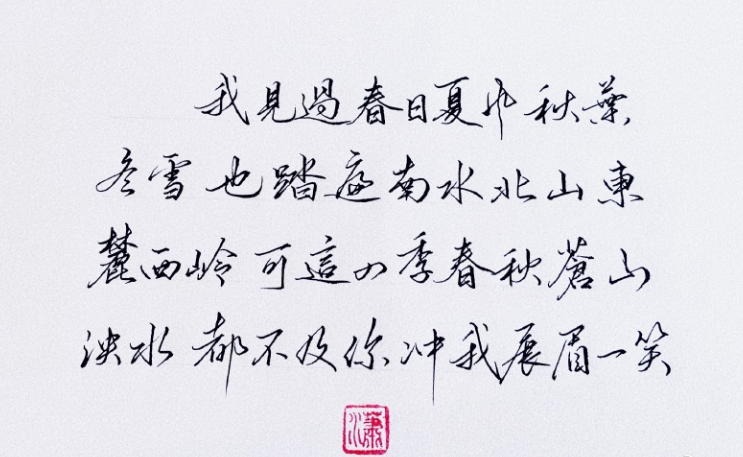 我見過春日夏风秋葉
冬雪 也踏遍南水北山東
麓西岭 可這四季春秋蒼山
泱水 都不及你冲我展眉一笑
瀟